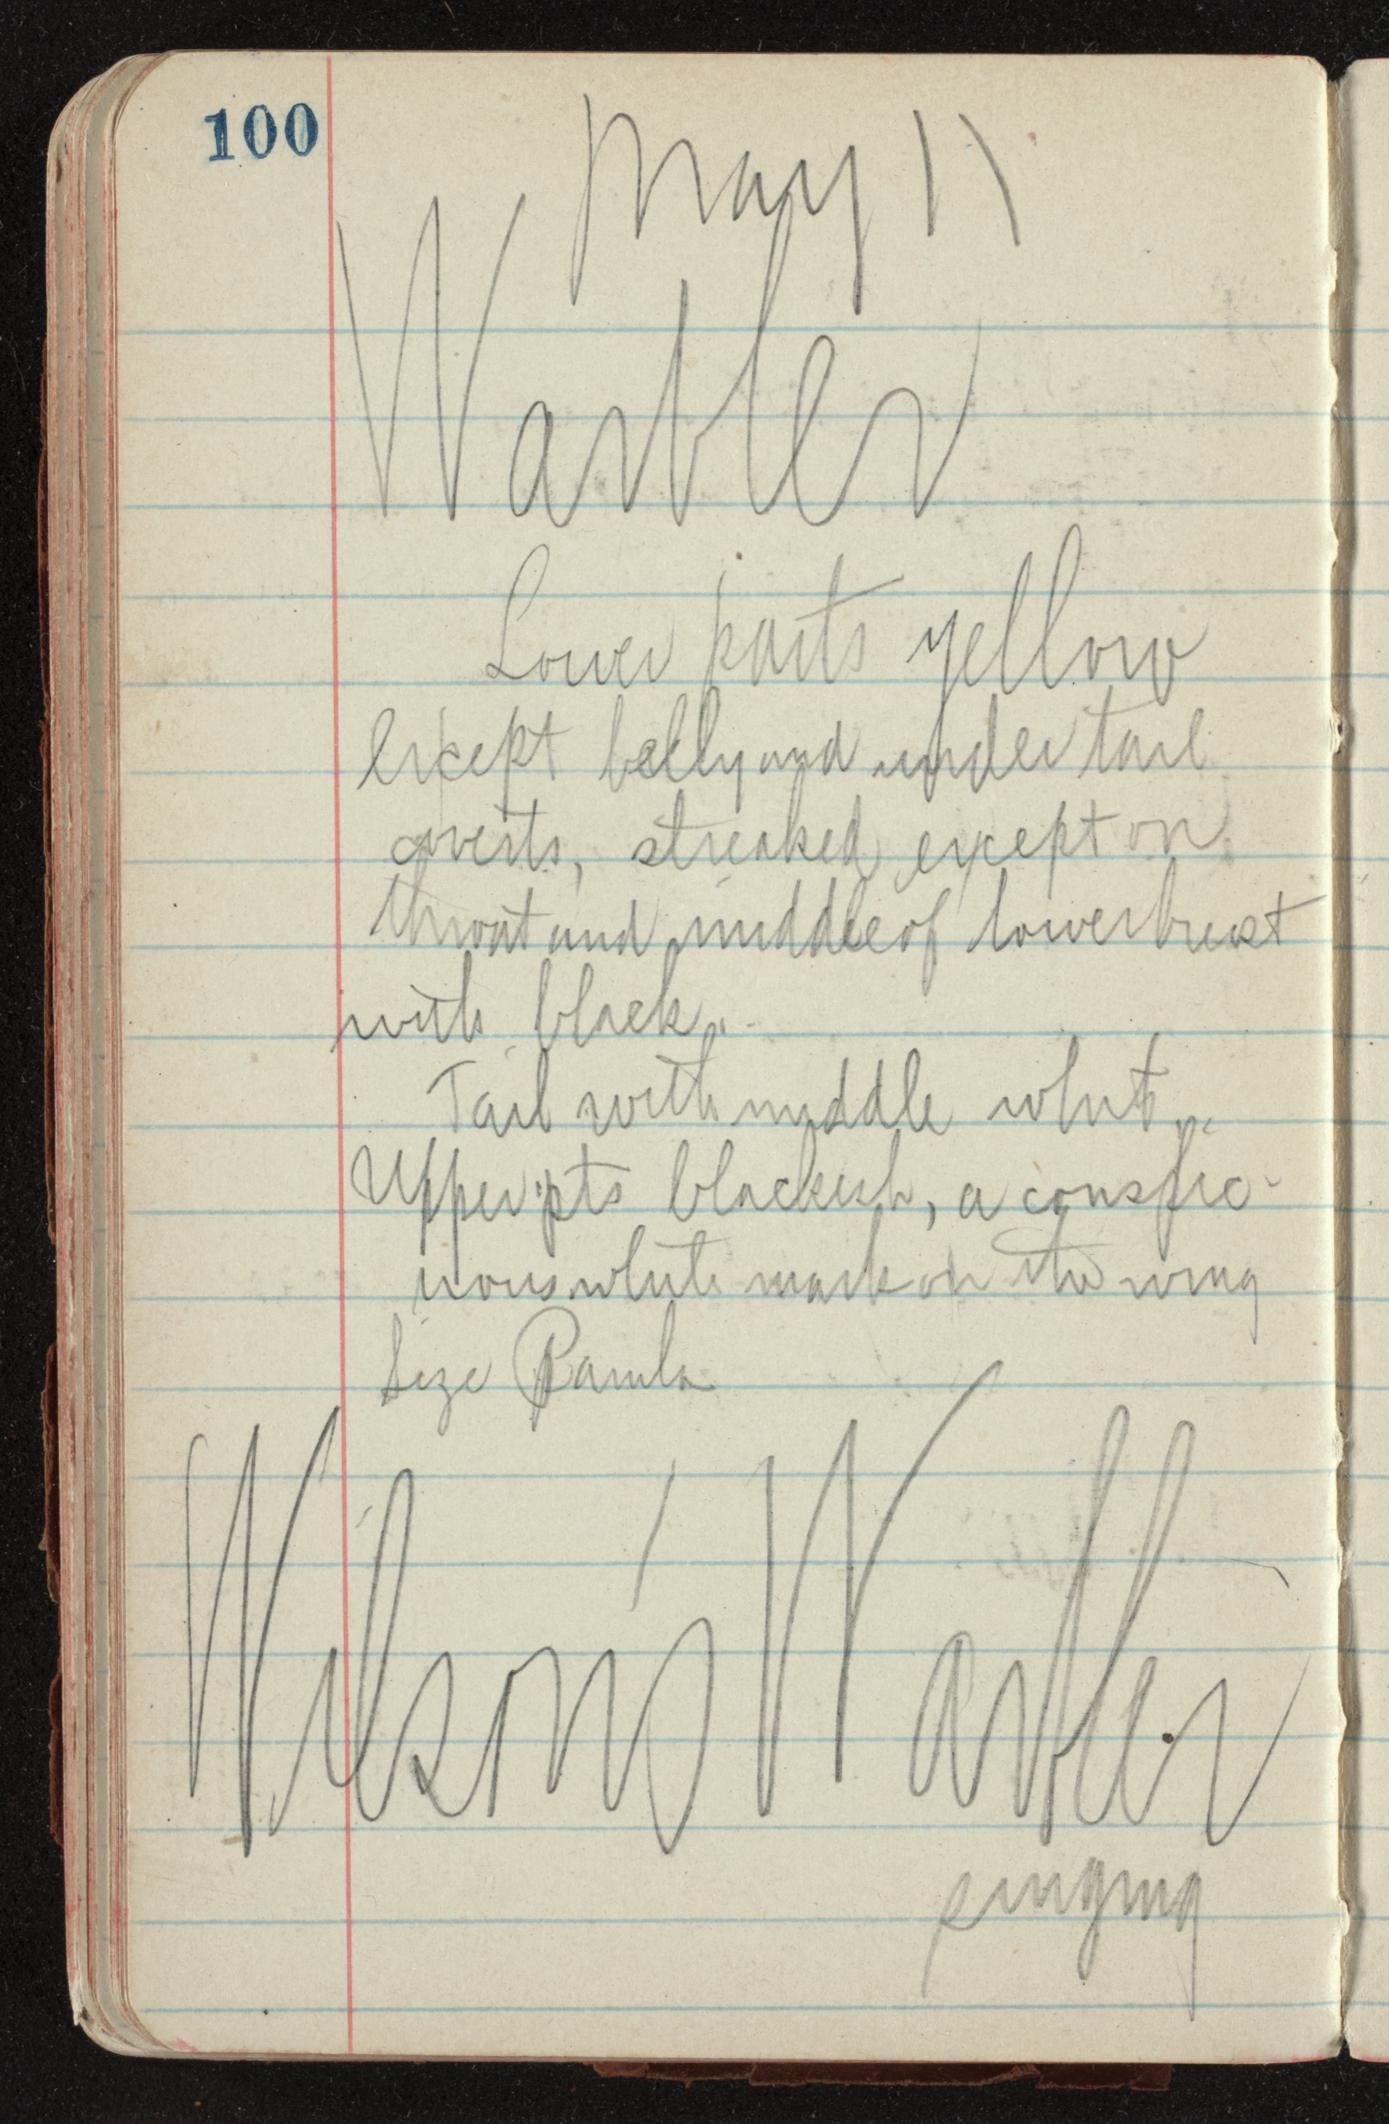 100
May 11
Warbler
Lower parts yellow
except belly and under tail
coverts, streaked except on
throat and middle of lower breast
with black.
Tail with middle white.
Upper pts blackish, a conspic-
uous white mark on the wing
Size Parula
Wilson's Warbler
singing